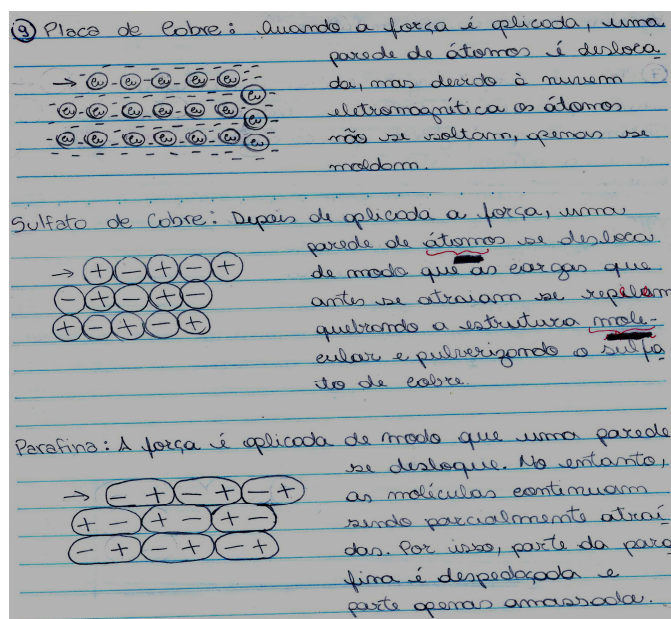 9 Placa de Cobre: Quando a força é aplicada, uma
parede de átomos é desloca
da, mas devido à nuvem
eletromagnética os átomos
não se soltam, apenas se
moldam.
→ Cu - Cu - Cu - Cu - Cu
Cu - Cu - Cu - Cu - Cu - Cu
Cu - Cu - Cu - Cu - Cu - Cu
Sulfato de Cobre: Depois de aplicada a força, uma
parede de átomos se desloca
de modo que as cargas que
antes se atraiam se repilam
quebrando a estrutura mole-
cular e pulverizando o sulfa
to de cobre.
→ + - + - +
- + - + -
+ - + - +
Parafina: A força é aplicada de modo que uma parede
se desloque. No entanto,
as moléculas continuam
sendo parcialmente atraí
das. Por isso, parte da para
fina é despedaçada e
parte apenas amassada.
→ - + - + - +
+ - + - + -
- + - + - +